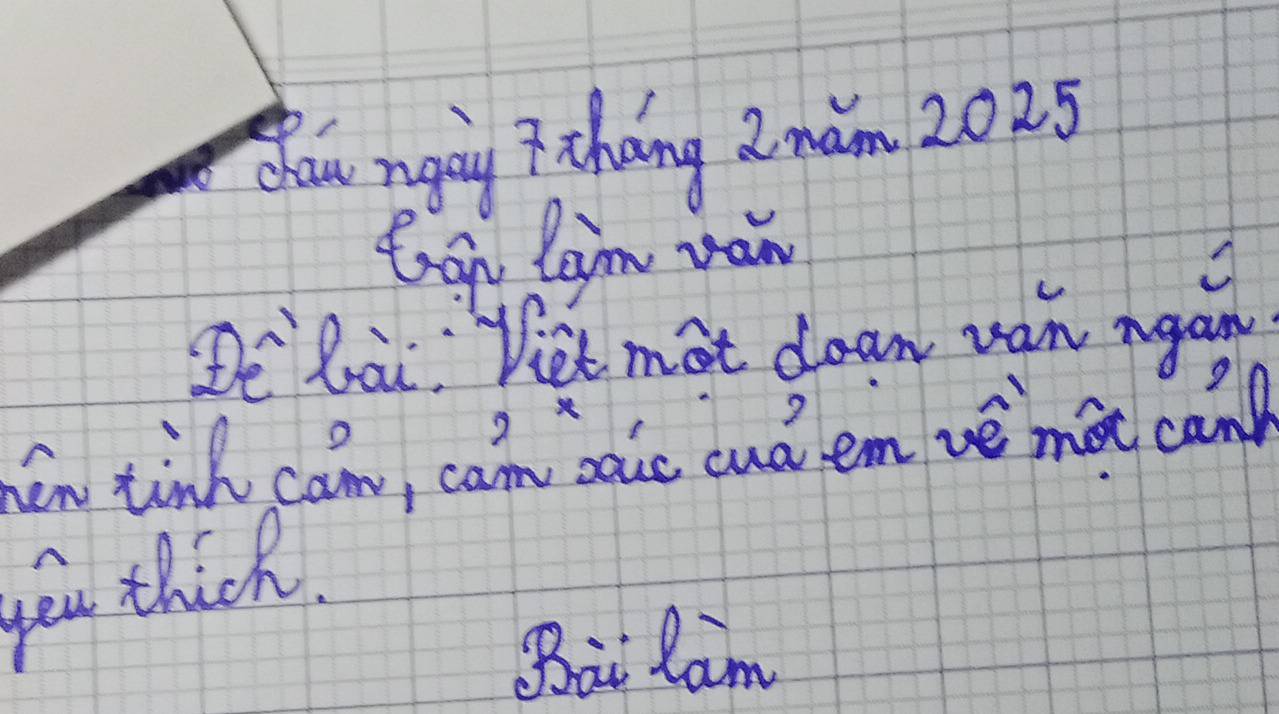 sáu ngày 7 tháng 2 năm 2025
Tập làm văn
Đề bài: Viết một đoạn văn ngắn
nên tình cảm, cảm xúc của em về một cảnh
yêu thích.
Bài làm